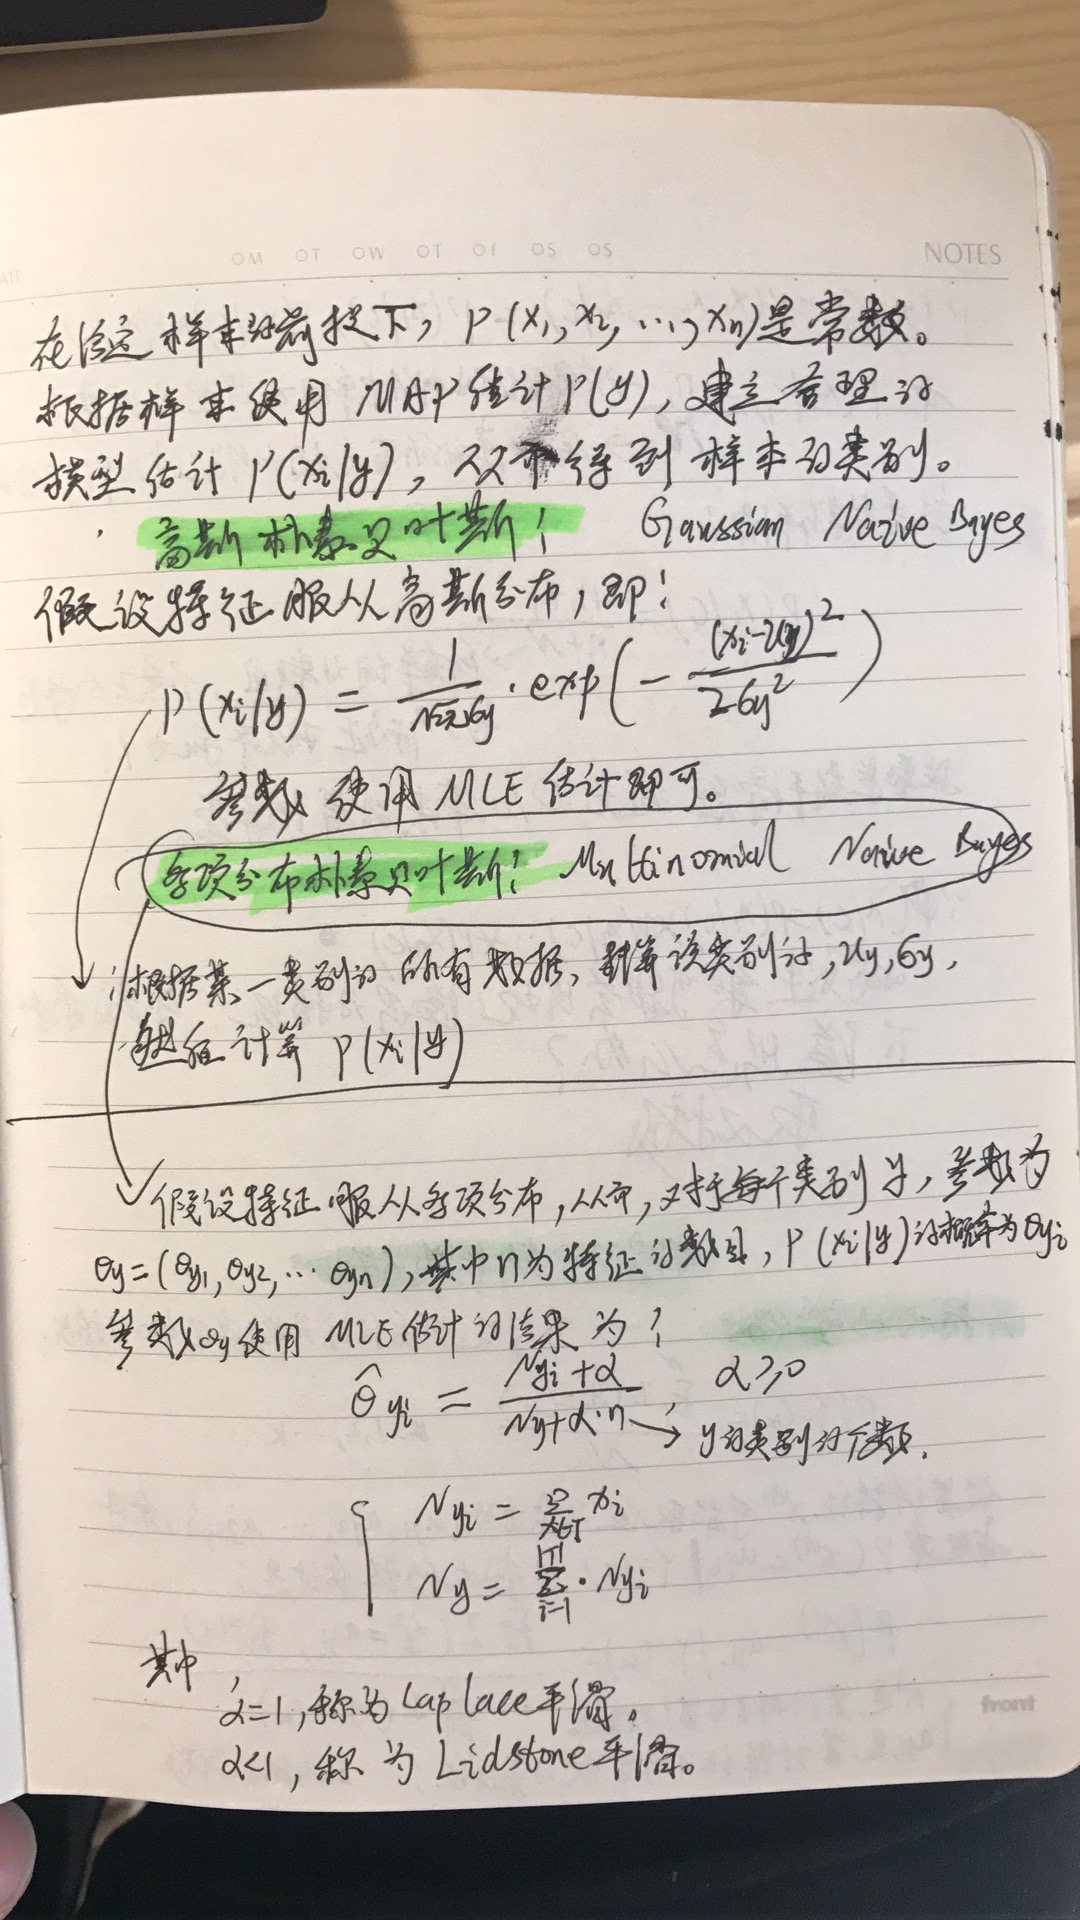 NOTES
在给定样本的前提下, P(x₁, x₂, ..., xₙ)是常数。
根据样本使用 MAP估计P(y), 建立合理的
模型估计 P(xᵢ|y), 从而得到样本的类别。
高斯朴素贝叶斯: Gaussian Naive Bayes
假设特征服从高斯分布, 即:
P(xᵢ|y) = 1/(√2π σy) · exp(-(xᵢ-μy)²/2σy²)
参数使用MLE估计即可。
多项分布朴素贝叶斯: Multinomial Naive Bayes
根据某一类别的所有数据, 计算该类别的, μy, σy,
然后计算 P(xᵢ|y)
假设特征服从多项分布, 从而, 对于每个类别y, 参数为
θy=(θy₁, θy₂, ... θyₙ), 其中n为特征的数目, P(xᵢ|y)的概率为θyᵢ
参数θy使用MLE估计的结果为:
θ̂yᵢ = (Nyᵢ+α)/(Ny+α·n), α≥0
y的类别的个数.
Nyᵢ = Σ_{x∈T} xᵢ
Ny = Σ_{i=1}^{|T|} · Nyᵢ
其中,
α=1, 称为Laplace平滑。
α<1, 称为Lidstone平滑。
front